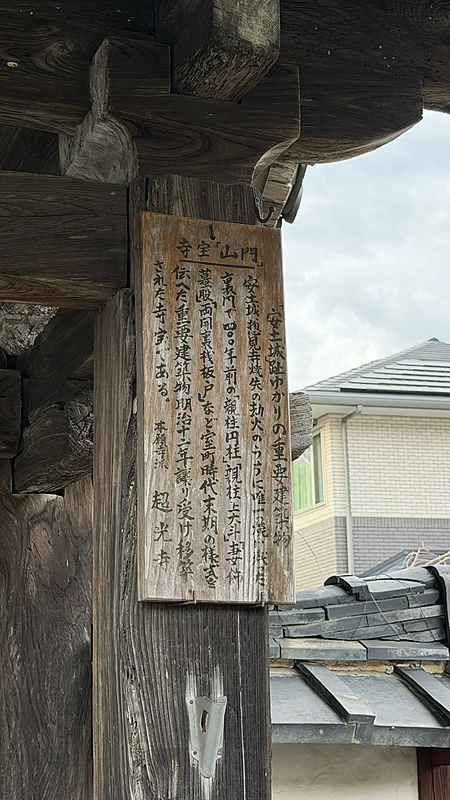 寺宝「山門」
「安土城趾ゆかりの重要建築物
安土城惣見寺焼失の劫火のうちに唯一焼け残た
裏門で四〇〇年前の「親柱円柱」「親柱上大斗」「妻飾
蟇股」「両開裏桟板戸」など室町時代末期の様式を
伝へた重要建築物明治十二年譲り受け移築
された寺宝である。 本願寺派 超光寺